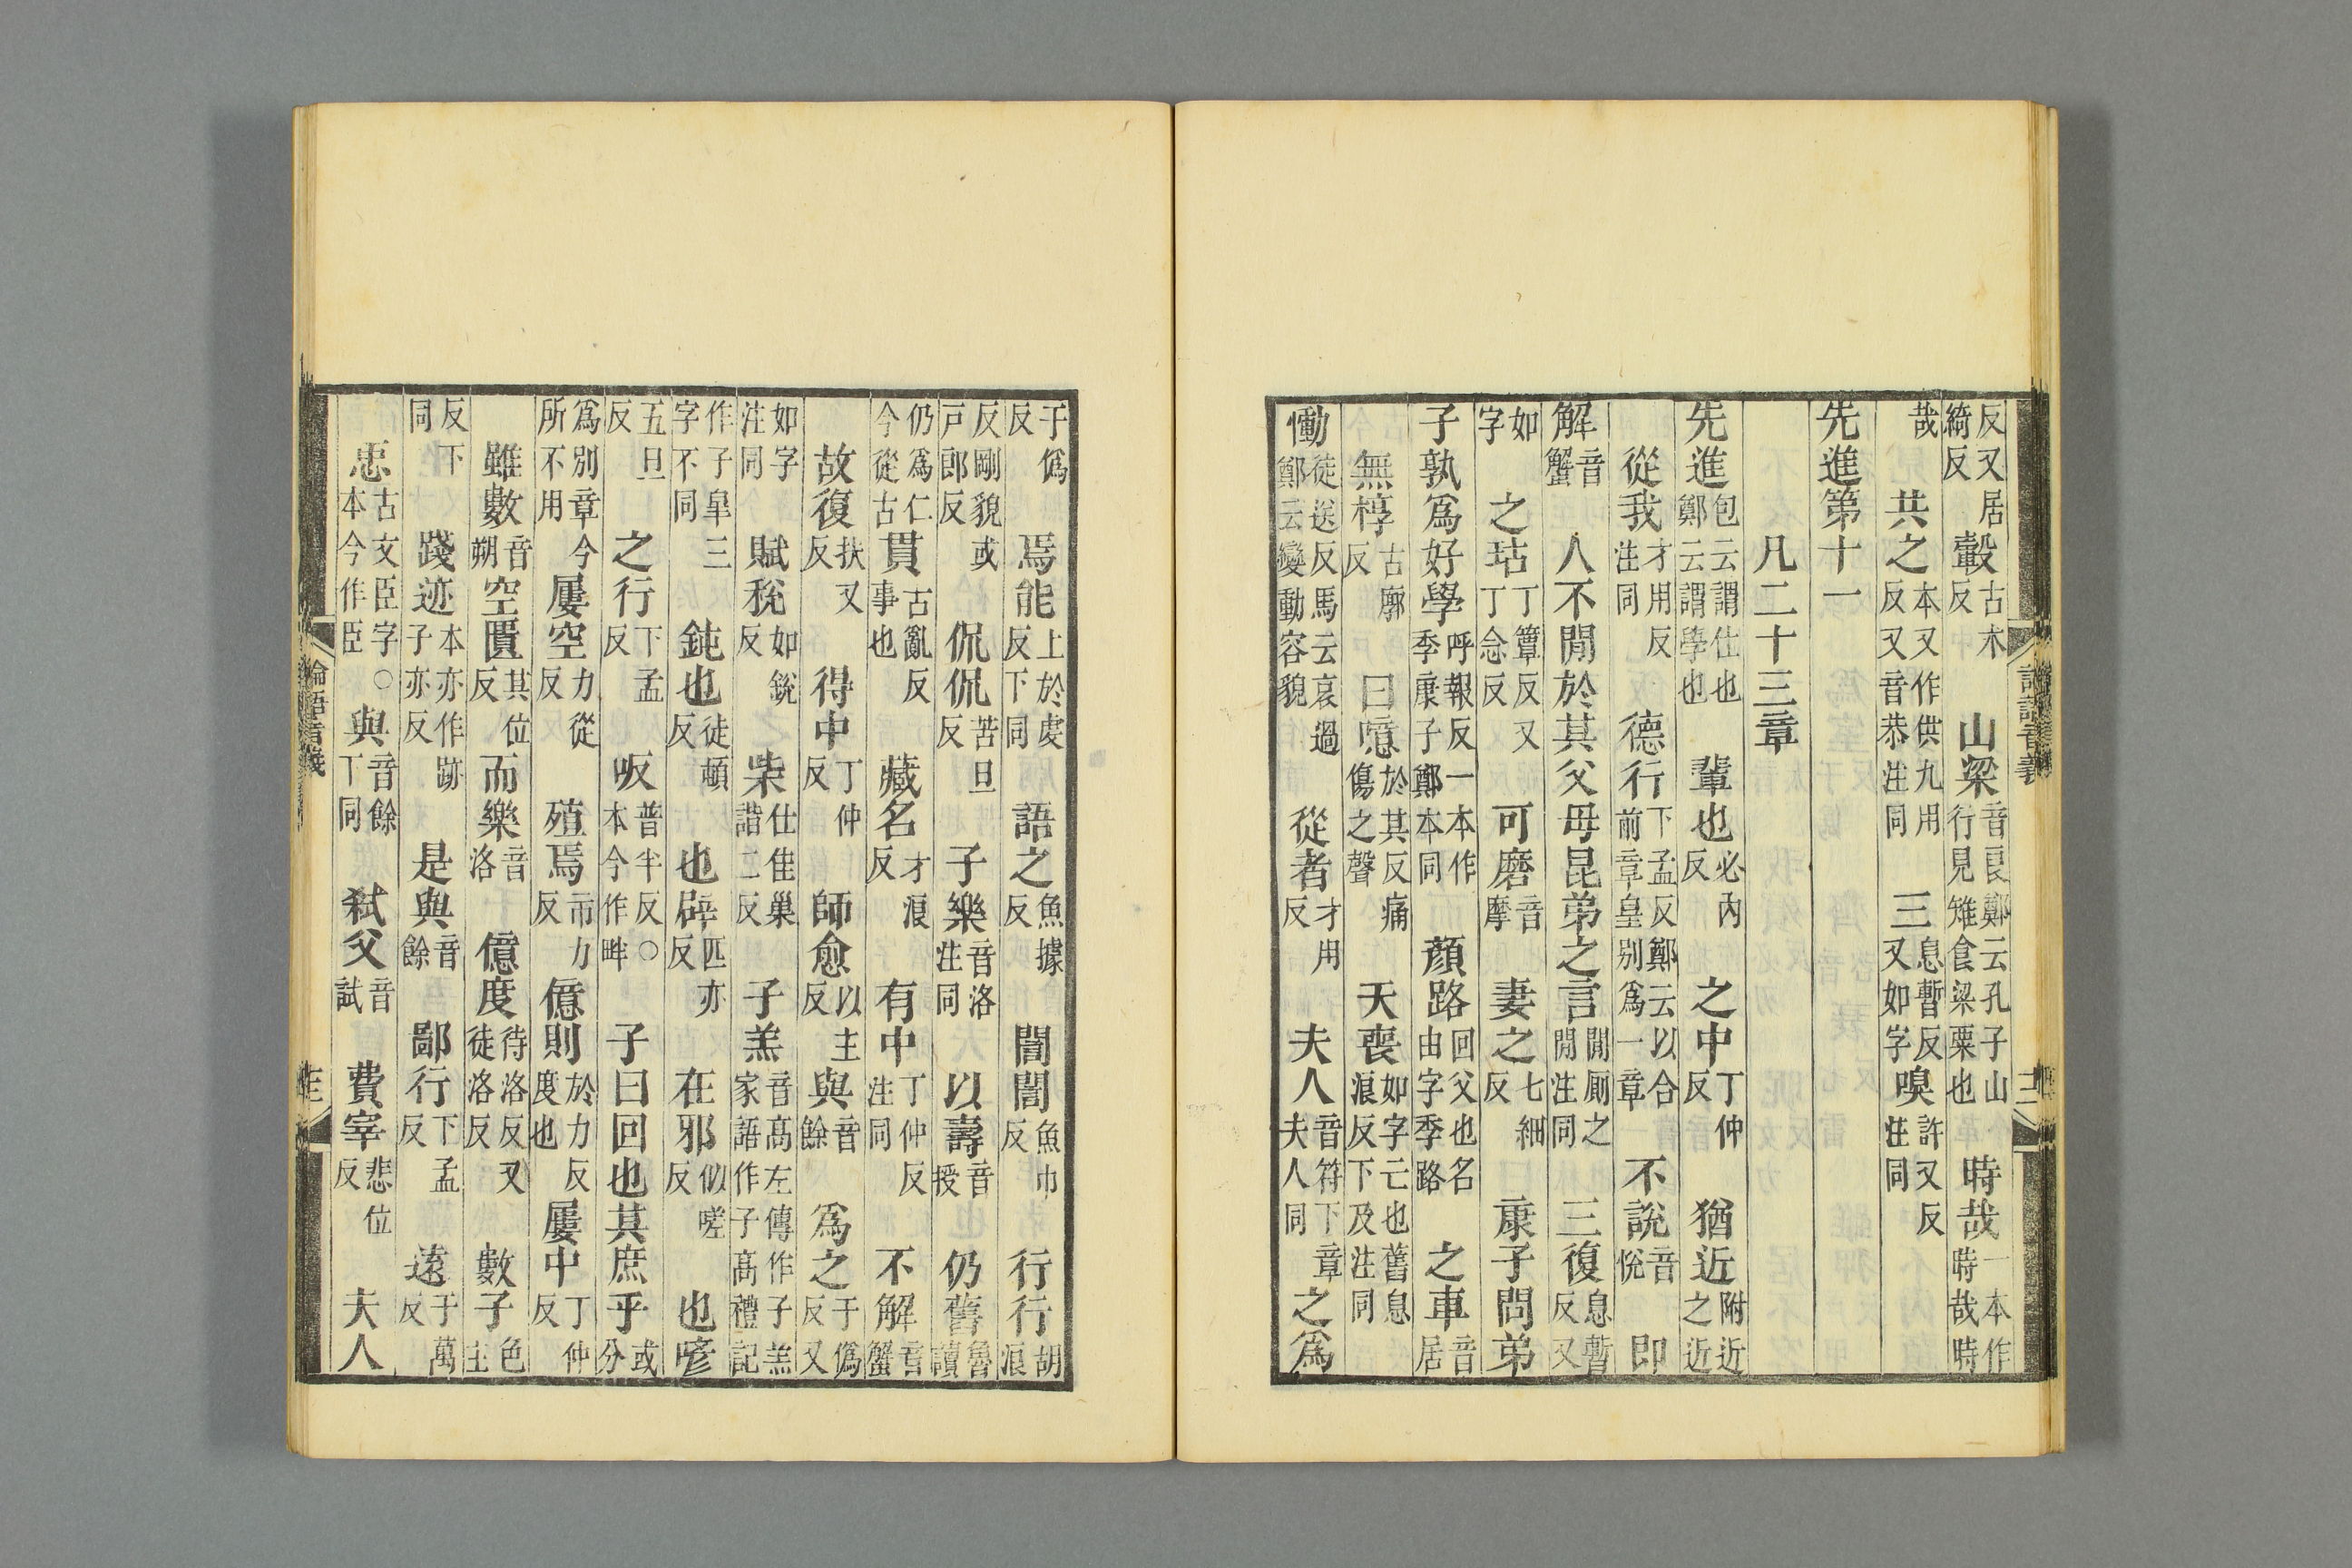 反又居綺反轂古木反山梁音良鄭云孔子山行見雉食梁粟也時哉一本作時哉時
哉共之本又作供九用反又音恭注同三息暫反又如字嗅許又反注同
先進第十一
凡二十三章
先進包云謂仕也鄭云謂學也輩也必內反之中丁仲反猶近附近之近
從我才用反注同德行下孟反鄭云以合前章皇別爲一章不說音悅即
解音蟹人不閒於其父母昆弟之言閒厠之閒注同三復息暫反又
如字之玷丁簟反又丁念反可磨音摩妻之七細反康子問弟
子孰爲好學呼報反一本作季康子鄭本同顏路回父也名由字季路之車音居
無椁古廓反曰噫於其反痛傷之聲天喪如字亡也舊息浪反下及注同
慟徒送反馬云哀過鄭云變動容貌從者才用反夫人音符下章夫人同之爲
于僞反焉能上於虔反下同語之魚據反誾誾魚巾反行行胡浪
反剛貌或戶郎反侃侃苦旦反子樂音洛注同以壽音授仍舊魯讀
仍爲仁今從古貫古亂反事也藏名才浪反有中丁仲反注同不解音蟹
故復扶又反得中丁仲反師愈以主反與音餘爲之于僞反又
如字注同賦稅如銳反柴仕佳巢諧二反子羔音高左傳作子羔家語作子高禮記
作子皐三字不同鈍也徒頓反也辟匹亦反在邪似嗟反也喭
五旦反之行下孟反吸普半反○本今作畔子曰回也其庶乎或分
爲別章今所不用屢空力從反殖焉市力反億則於力反度也屢中丁仲反
雖數音朔空匱其位反而樂音洛億度待洛反又徒洛反數子色主
反下同踐迹本亦作跡子亦反是與音餘鄙行下孟反遠于萬反
恖古文臣字○本今作臣與音餘下同弒父音試費宰悲位反夫人
論語音義